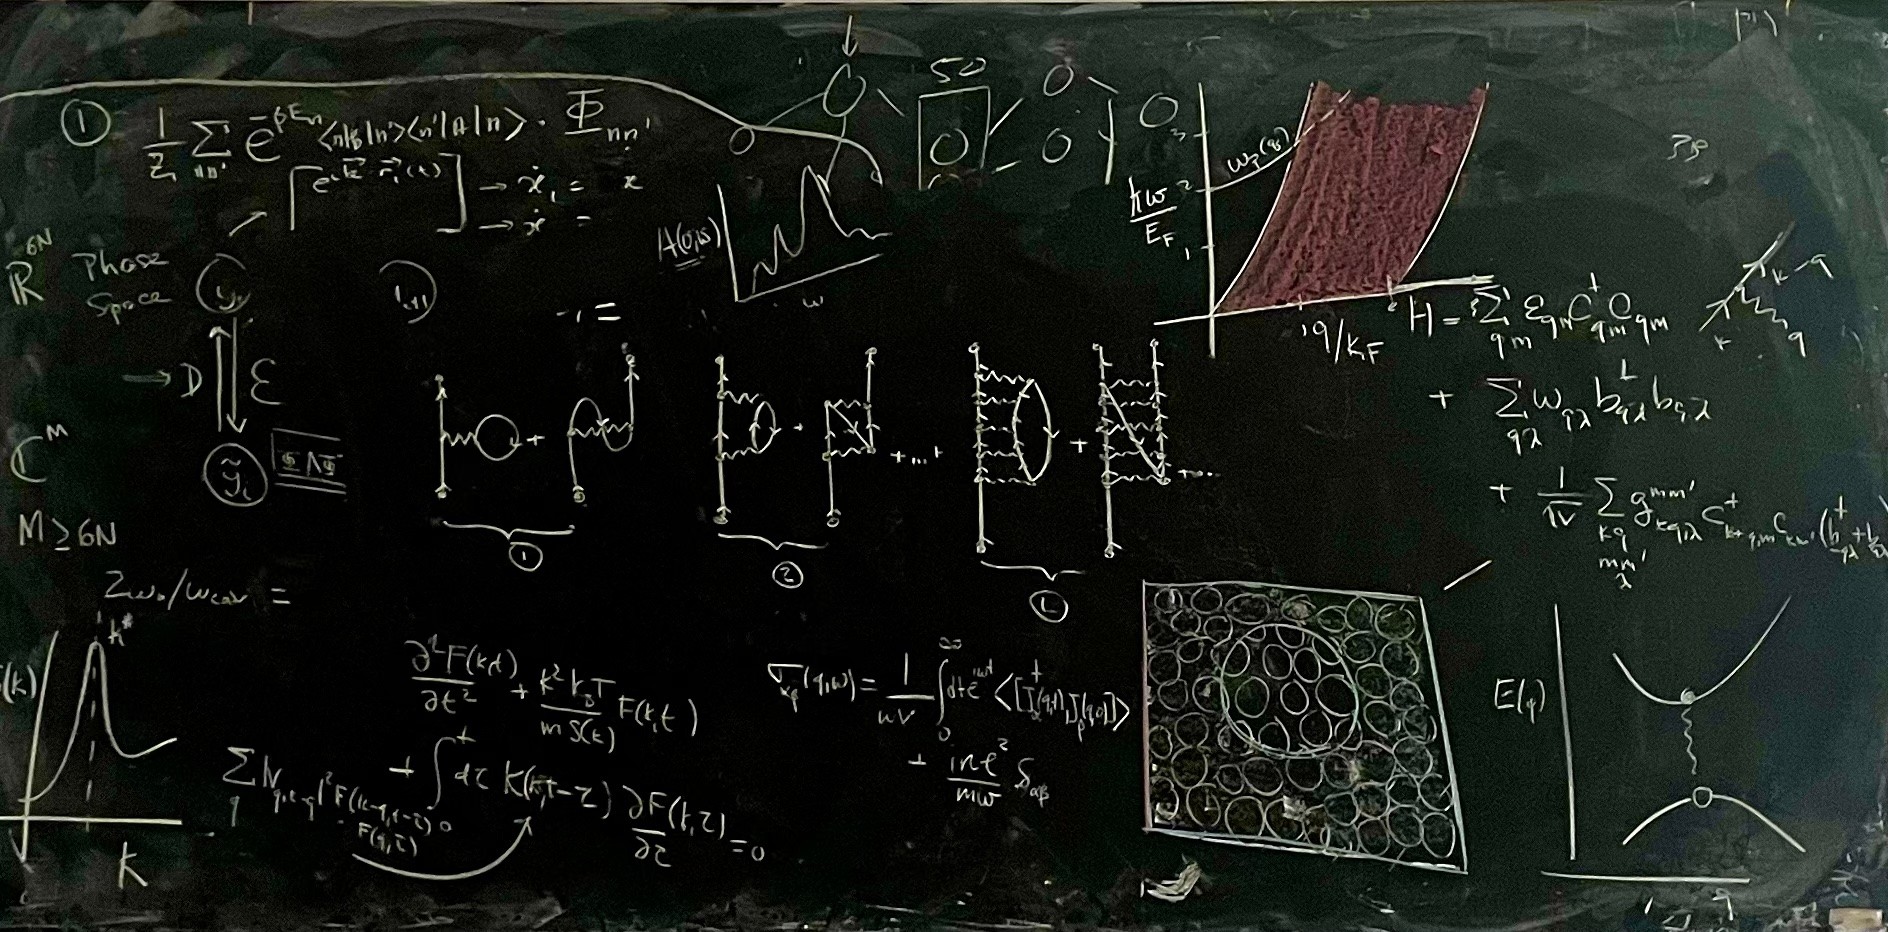 50
① 1/Z Σ_{nn'} e^{-βE_n} <n|B|n'><n'|A|n> · Φ_{nn'}
[e^{i\vec{k}·\vec{r}_i(t)}] → ẋ_1 = x
→ ẋ =
ℝ^{6N} Phase Space
→ D ℰ
ℂ^M ỹ_i ΦΛΦ
M ≥ 6N
A(0,ω)
ω
ω_p(q)
3
2
1
ħω/E_F
1 2 q/k_F
H = Σ_{qm} ε_{qm} C†_{qm} C_{qm}
+ Σ_{qλ} ω_{qλ} b†_{qλ} b_{qλ}
+ 1/√V Σ_{kq mm' λ} g^{mm'}_{kq,λ} C†_{k+q,m} C_{km'} (b†_{-qλ} + b_{qλ})
k-q
k q
+ + +...+ + +...
① ② Ⓛ
k*
(k)
k
∂²F(k,t)/∂t² + k²k_BT/mS(k) F(k,t)
+ ∫_0^t dτ K(k,t-τ) ∂F(k,τ)/∂τ = 0
Σ_q |V_{q,k-q}|² F(k-q,t-τ) · F(q,τ)
σ_{αβ}(q,ω) = 1/ωV ∫_0^∞ dt e^{iωt} <[J†_α(q,t), J_β(q,0)]>
+ ine²/mω δ_{αβ}
E(q)
q